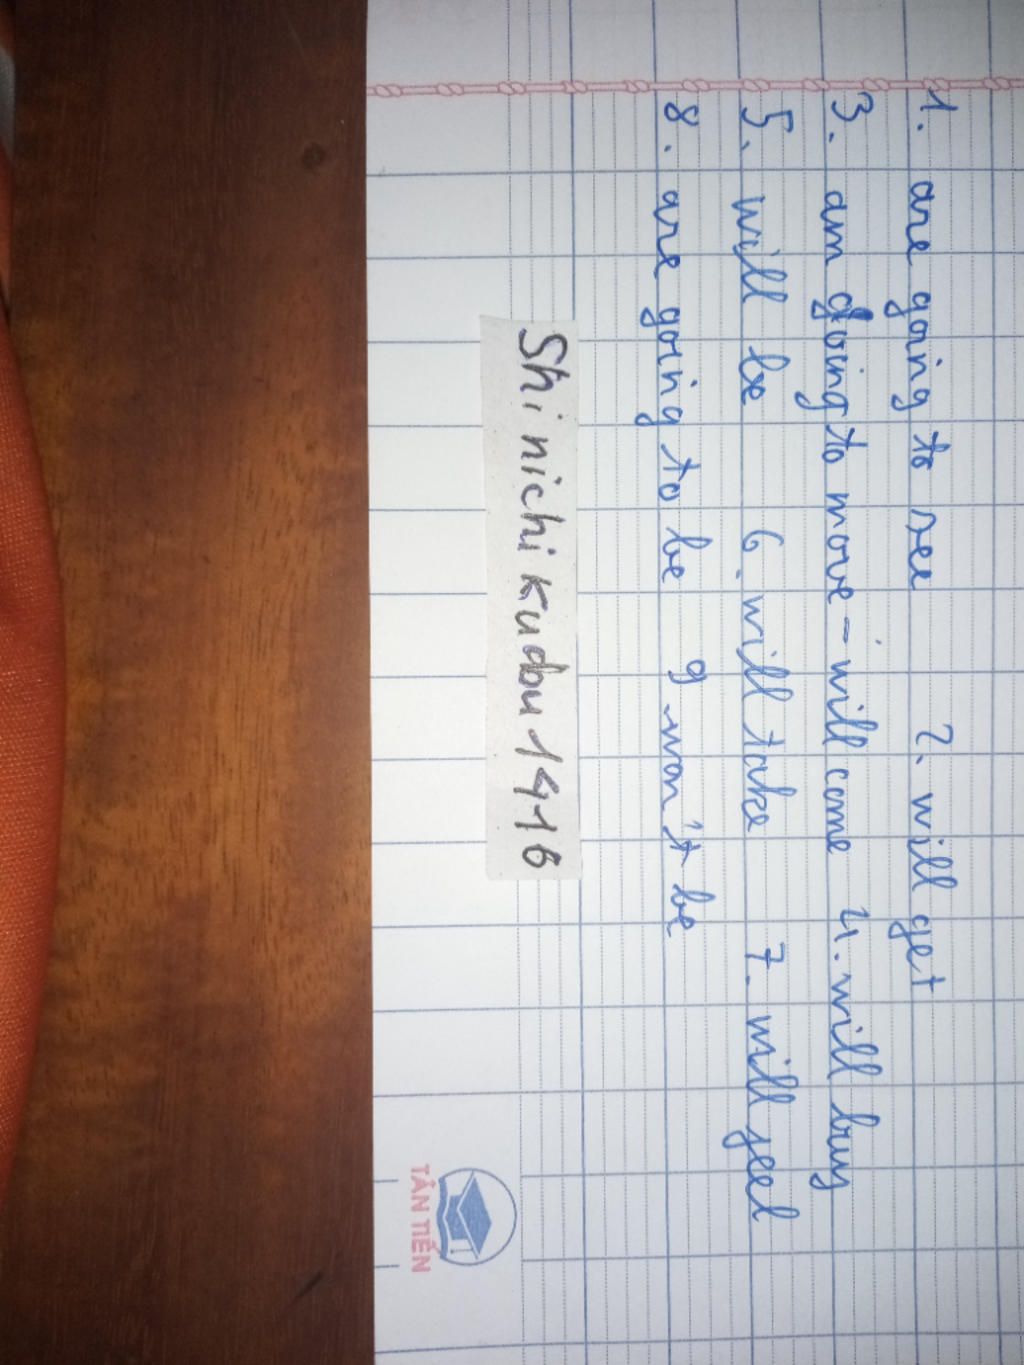 1. are going to see 2. will get
3. am going to move - will come 4. will buy
5. will be 6. will take 7. will feel
8. are going to be 9 won't be
Shinichikudou1416
TÂN TIẾN